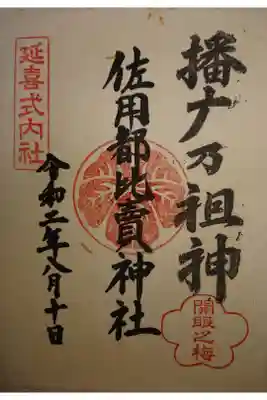 播州乃祖神
開眼之梅
佐用都比賣神社
延喜式内社
令和二年八月十日